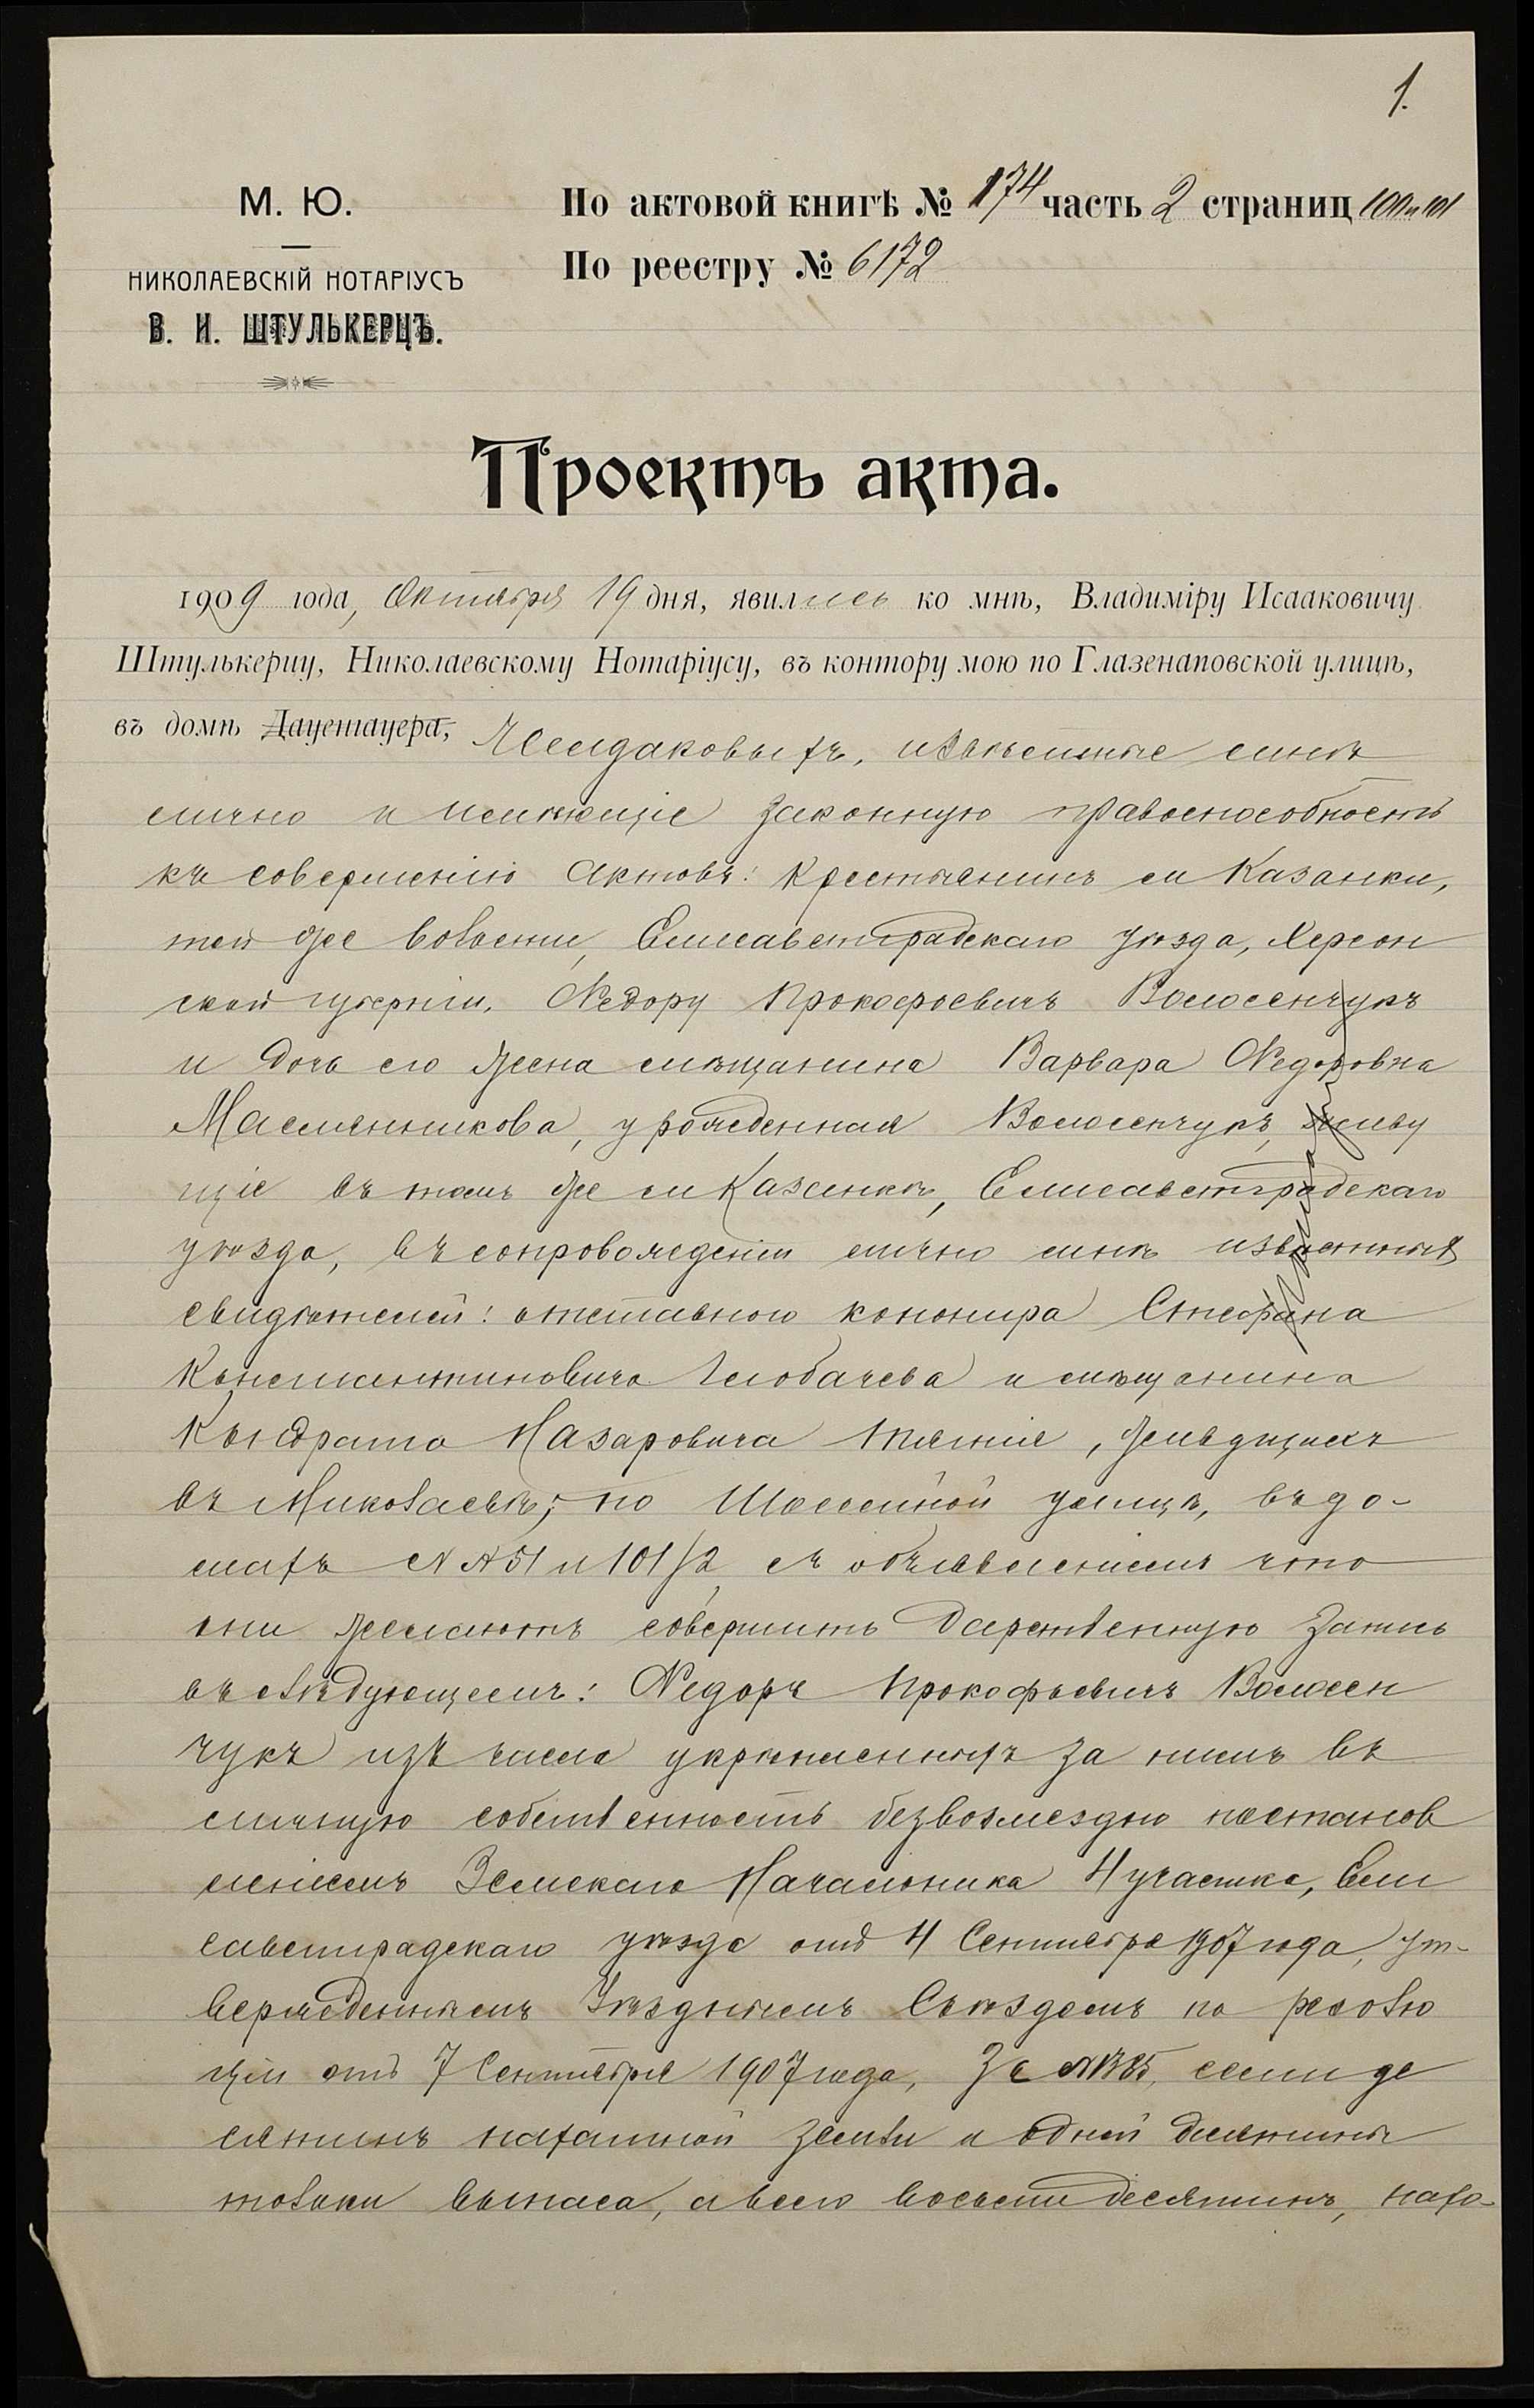 1.
М. Ю.
По актовой книгѣ № 174 часть 2 страниц 100 и 101
НИКОЛАЕВСКІЙ НОТАРІУСЪ
По реестру № 6172
В. И. ШТУЛЬКЕРЦЪ.
Проектъ акта.
1909 года, Октября 19 дня, явились ко мнѣ, Владиміру Исааковичу
Штулькерцу, Николаевскому Нотаріусу, въ контору мою по Глазенаповской улицѣ,
въ домѣ Дауетауера, извѣстные мнѣ
лично и имѣющіе законную правоспособность
къ совершенію актовъ: крестьянинъ м Казанки,
той же волости, Елисаветградскаго уѣзда, Херсон
ской губерніи, Ѳедору Прокофьевичъ Волосенчукъ
и дочь его жена мѣщанина Варвара Ѳедоровна
Маслянникова, урожденная Волосенчукъ, живу
щіе въ томъ же м Казанкѣ, Елисаветградскаго
уѣзда, въ сопровожденіи лично мнѣ извѣстныхъ
свидѣтелей: отставного канонира Стефана
Константиновича Глобачева и мѣщанина
Кондрата Назаровича живущихъ
въ Николаевѣ, по улицѣ, въ до-
махъ № № 51 и 101/2, съ объявленіемъ что
они желаютъ совершить дарственную запись
въ слѣдующемъ: Ѳедоръ Прокофьевичъ Волосен
чукъ изъ числа укрѣпленныхъ за нимъ въ
личную собственность безвозмездно постанов
леніемъ Земскаго Начальника 4 участка, Ели
саветградскаго уѣзда отъ 4 Сентября 1907 года, ут-
вержденнымъ Уѣзднымъ Съѣздомъ по резолю
ціи отъ 7 Сентября 1907 года, за № семи де
сятинъ пахатной земли и одной десятины
толоки выпаса, а всего восьми десятинъ, нахо-